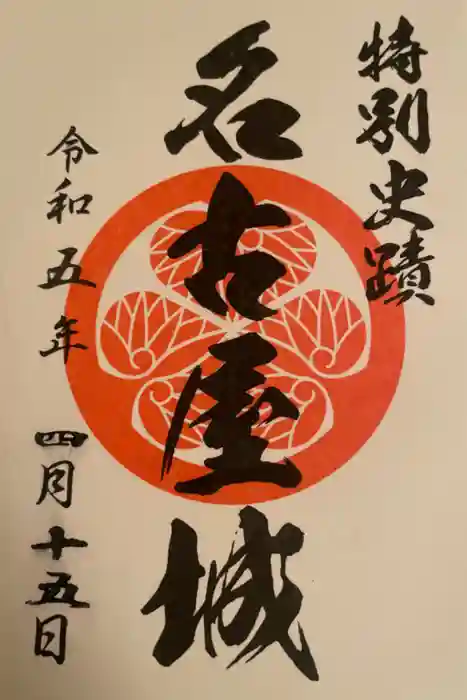 特別史蹟
名古屋城
令和五年 四月十五日